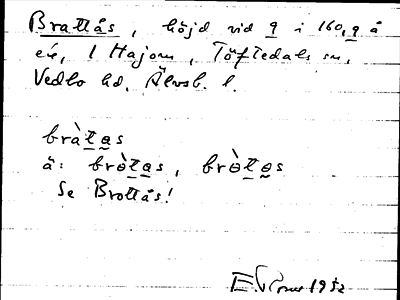 Brattås, höjd vid 9 i 160,9 å
ek, 1 Hajom, Töftedals sn,
Vedbo hd, Älvsb. l.
bràtas
ä: bròtas, bròtas
Se Brottås!
1952